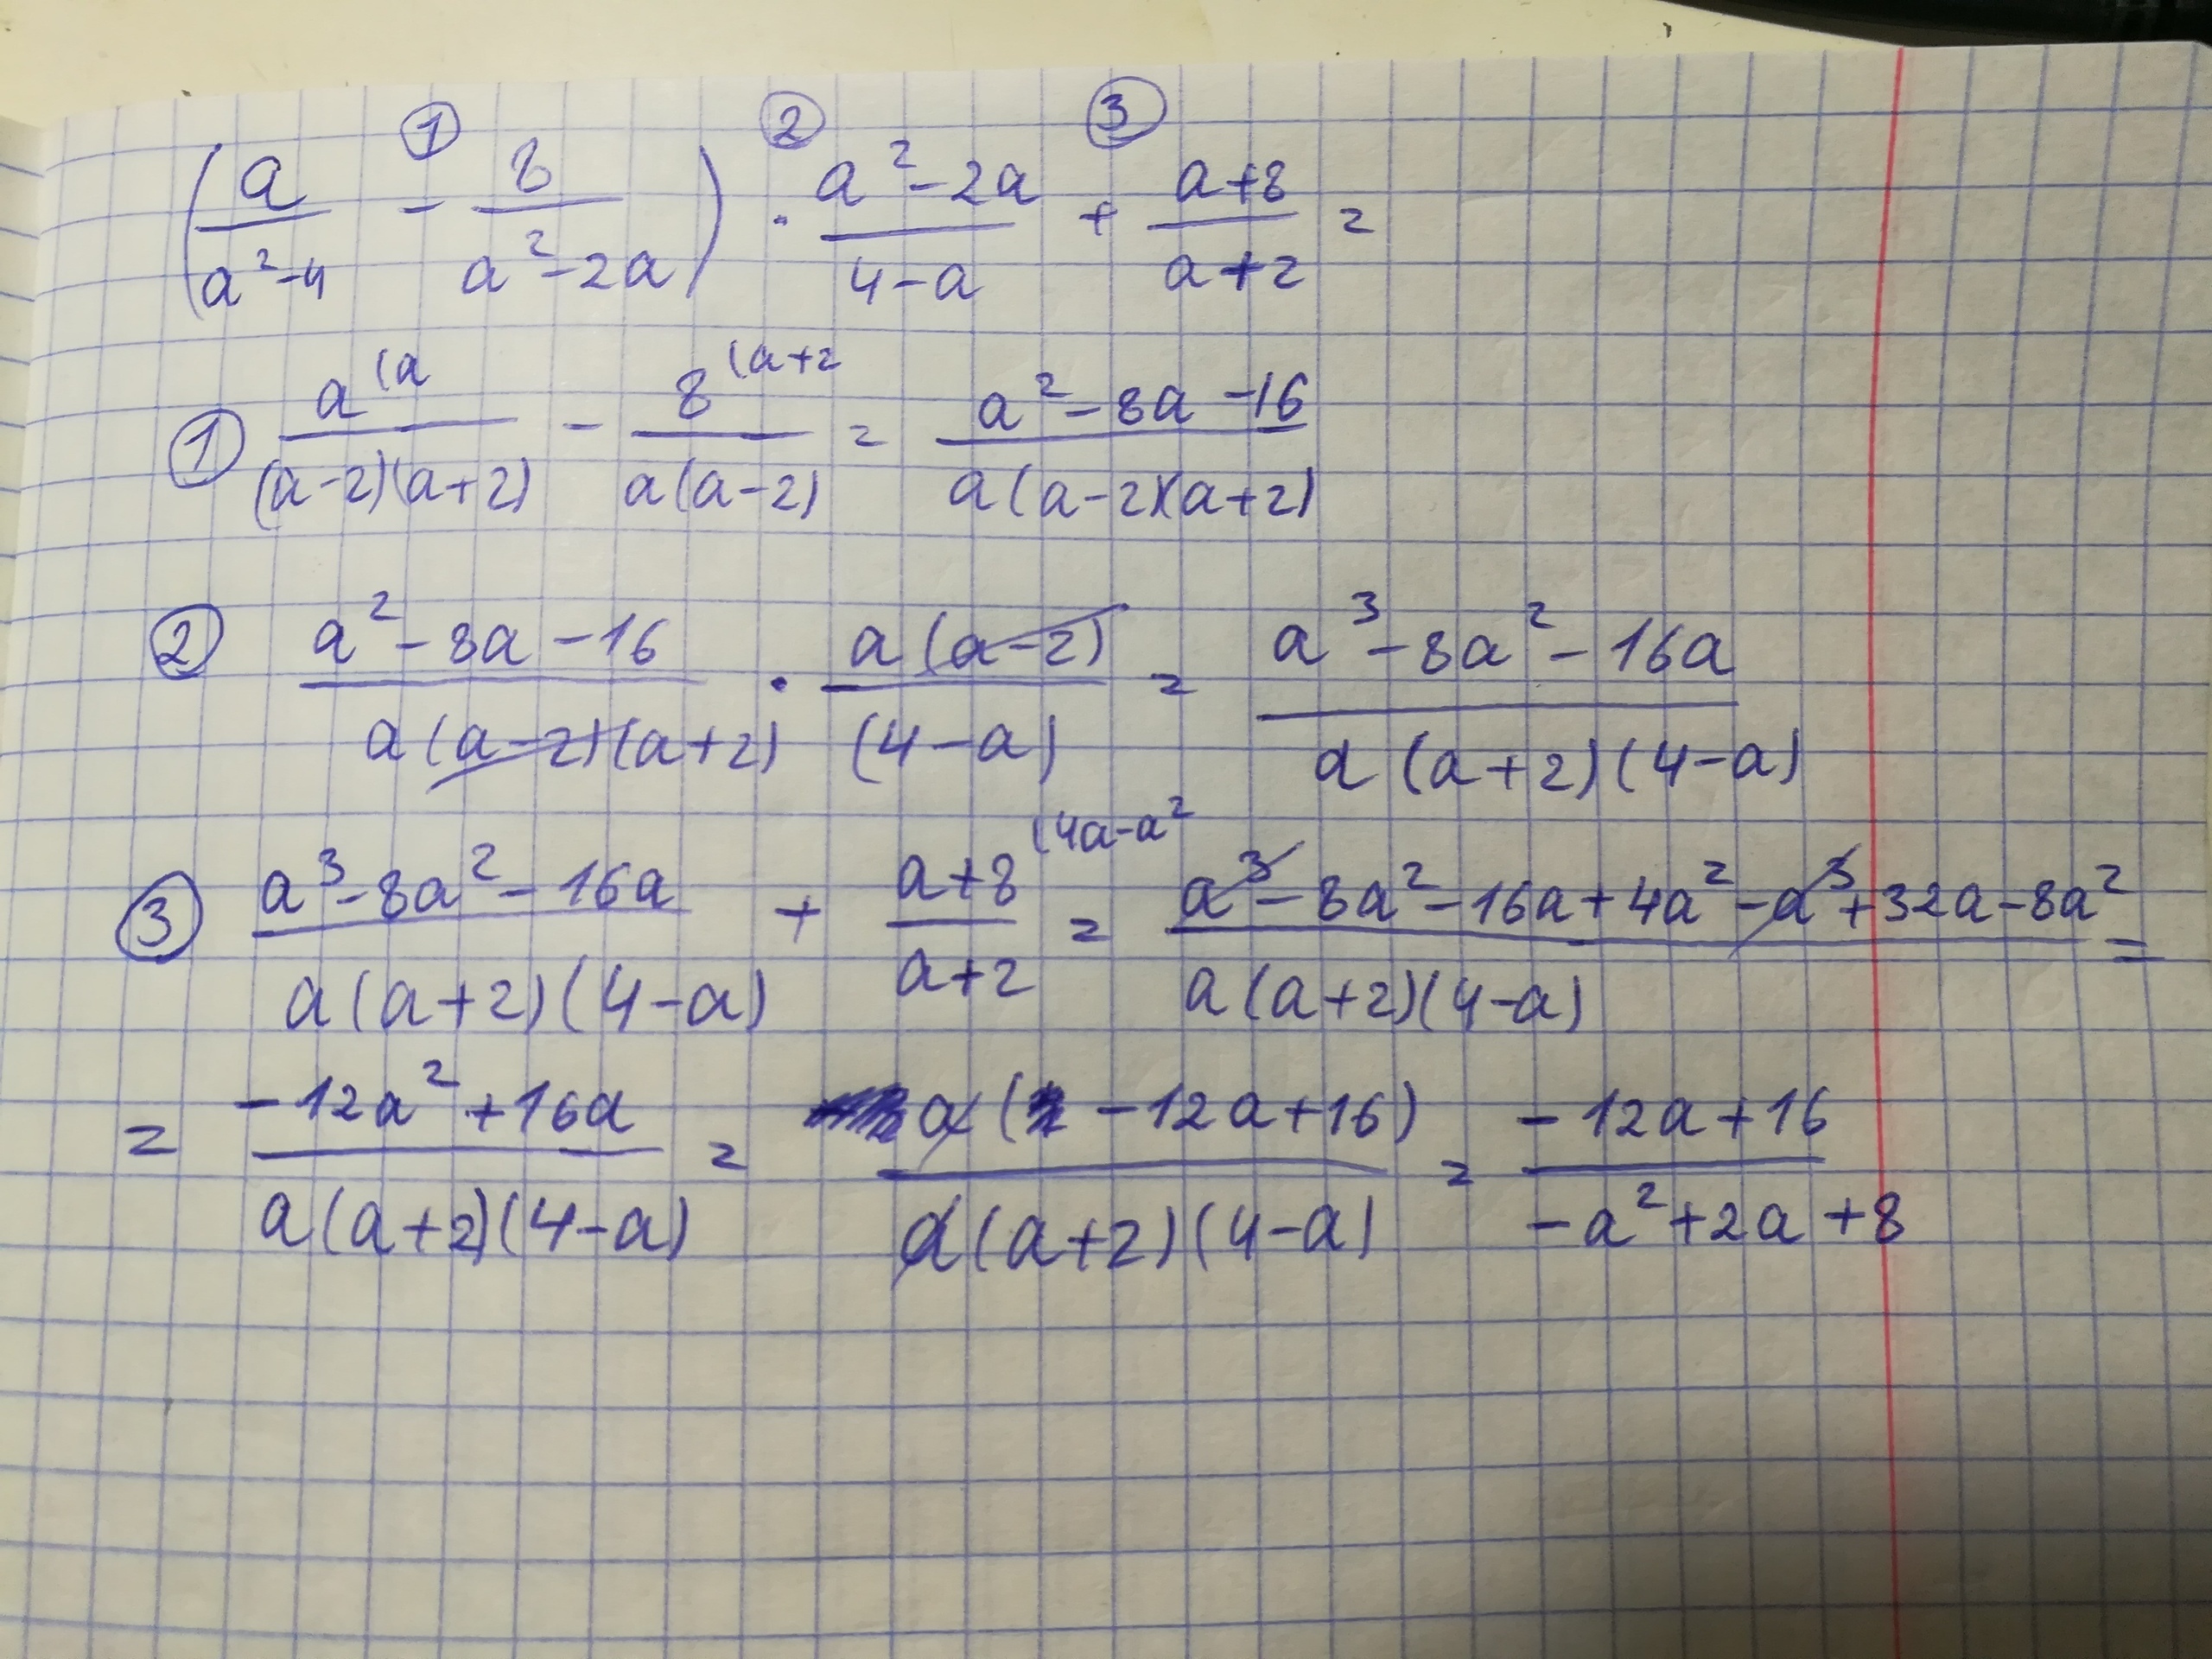 ① ② ③
(a/(a²-4) - 8/(a²-2a)) · (a²-2a)/(4-a) + (a+8)/(a+2) =
① a⁽ᵃ/((a-2)(a+2)) - 8⁽ᵃ⁺²/(a(a-2)) = (a²-8a-16)/(a(a-2)(a+2))
② (a²-8a-16)/(a(a-2)(a+2)) · a(a-2)/(4-a) = (a³-8a²-16a)/(a(a+2)(4-a))
③ (a³-8a²-16a)/(a(a+2)(4-a)) + (a+8)/(a+2) (4a-a² = (a³-8a²-16a+4a²-a³+32a-8a²)/(a(a+2)(4-a)) =
= (-12a²+16a)/(a(a+2)(4-a)) = a(-12a+16)/(a(a+2)(4-a)) = (-12a+16)/(-a²+2a+8)